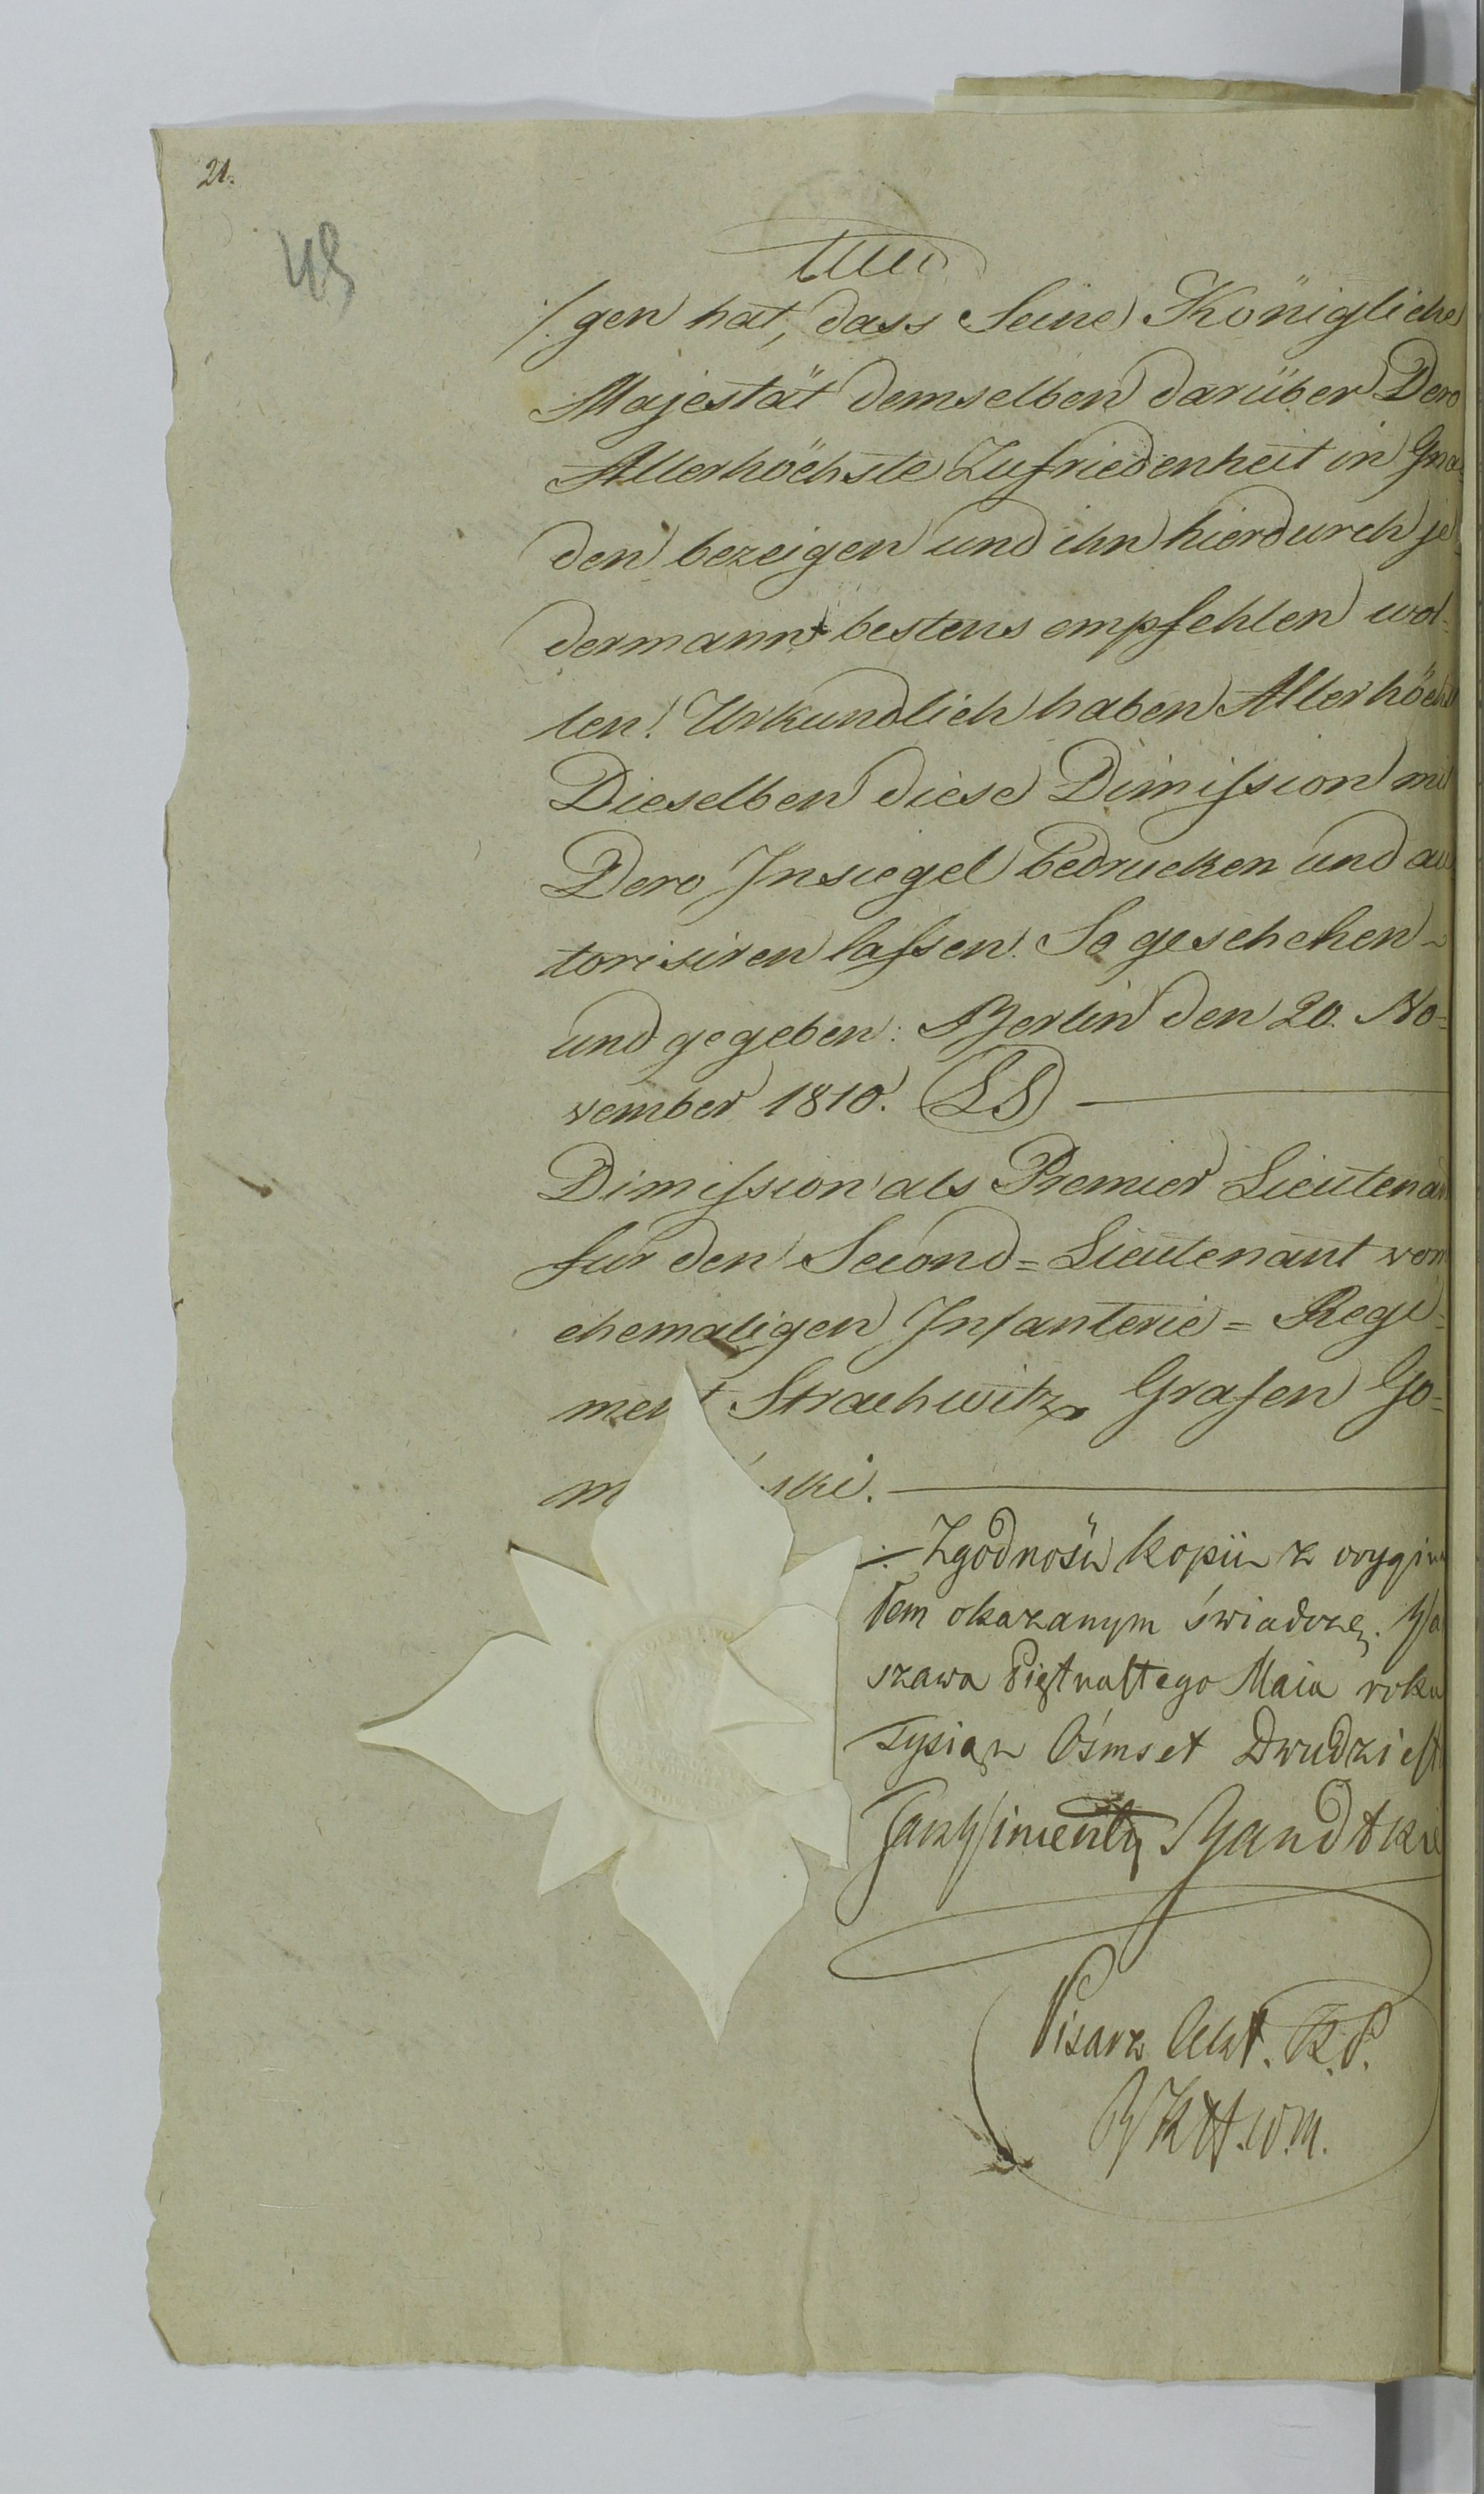 21.
49
/. gen hat, dass Seine Königliche
Majestät demselben darüber Dero
Allerhöchste Zufriedenheit in Gna-
den bezeigen und ihn hierdurch je-
dermann bestens empfehlen wol-
len. Urkundlich haben Allerhöchst
Dieselben diese Dimission mit
Dero Insiegel bedrucken und au
torisiren lassen. So geschehen -
und gegeben: Berlin den 20. No=
vember 1810. LS
Dimission als Premier Lieutenan
für den Second=Lieutenant vom
ehemaligen Infanterie=Regi=
ment Strachwitz Grafen Go=
m ski.
Zgodność kopii z orygina
łem okazanym świadczę. Wa
szawa Piętnastego Maia roku
Tysiąc Ośmset Dwudziest
Jan Wincenty Bandtkie
Pisarz Akt. K.P.